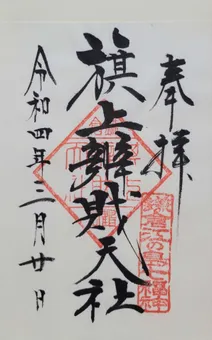 奉拝
旗上辨財天社
令和四年三月廿日
鎌倉江の島七福神